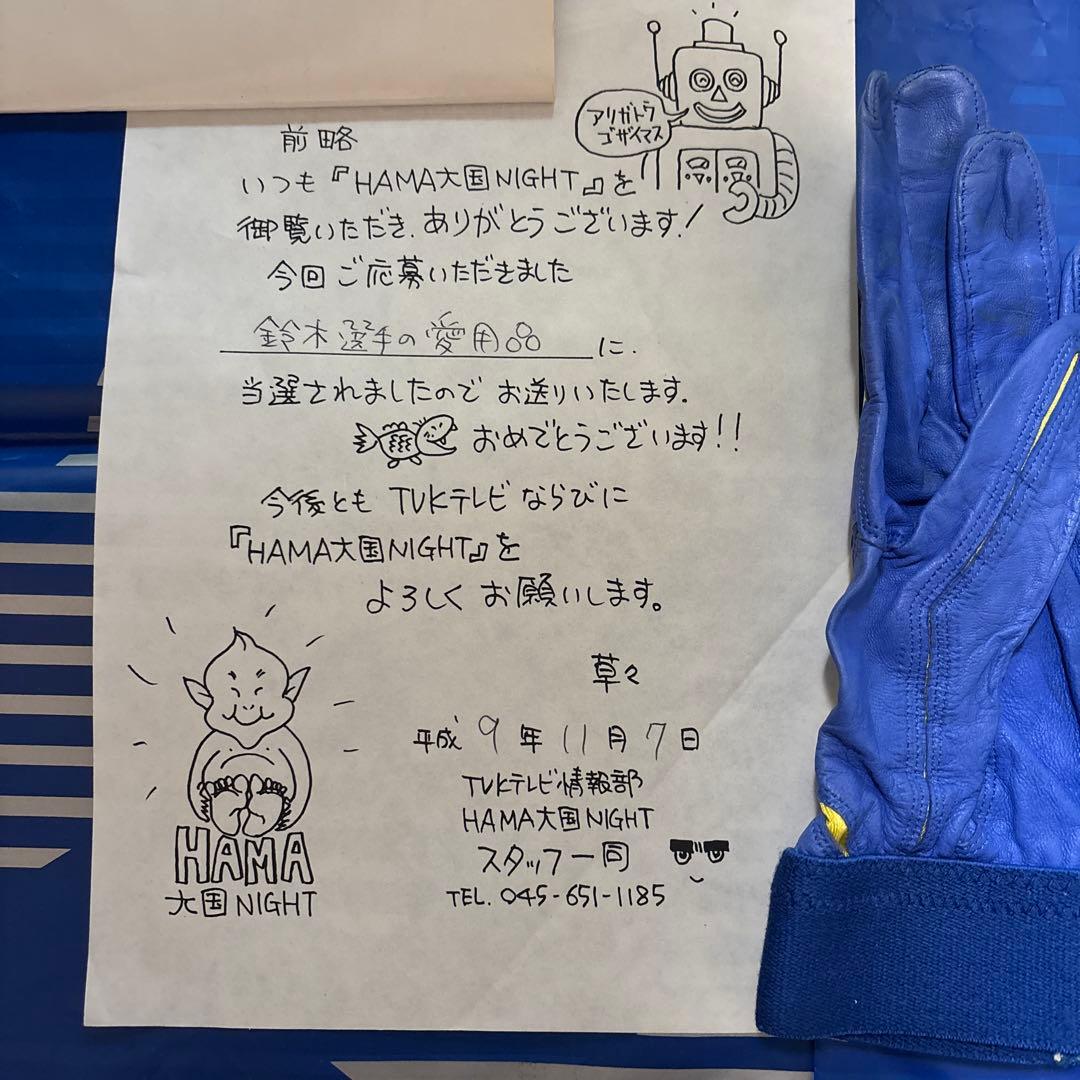 アリガトウ
ゴザイマス
前略
いつも『HAMA大国NIGHT』を
御覧いただき、ありがとうございます!
今回ご応募いただきました
鈴木選手の愛用品に、
当選されましたので お送りいたします。
おめでとうございます!!
今後とも TVKテレビならびに
『HAMA大国NIGHT』を
よろしくお願いします。
草々
平成 9 年 11 月 7 日
TVKテレビ情報部
HAMA大国NIGHT
スタッフ一同
TEL. 045-651-1185
HAMA
大国NIGHT